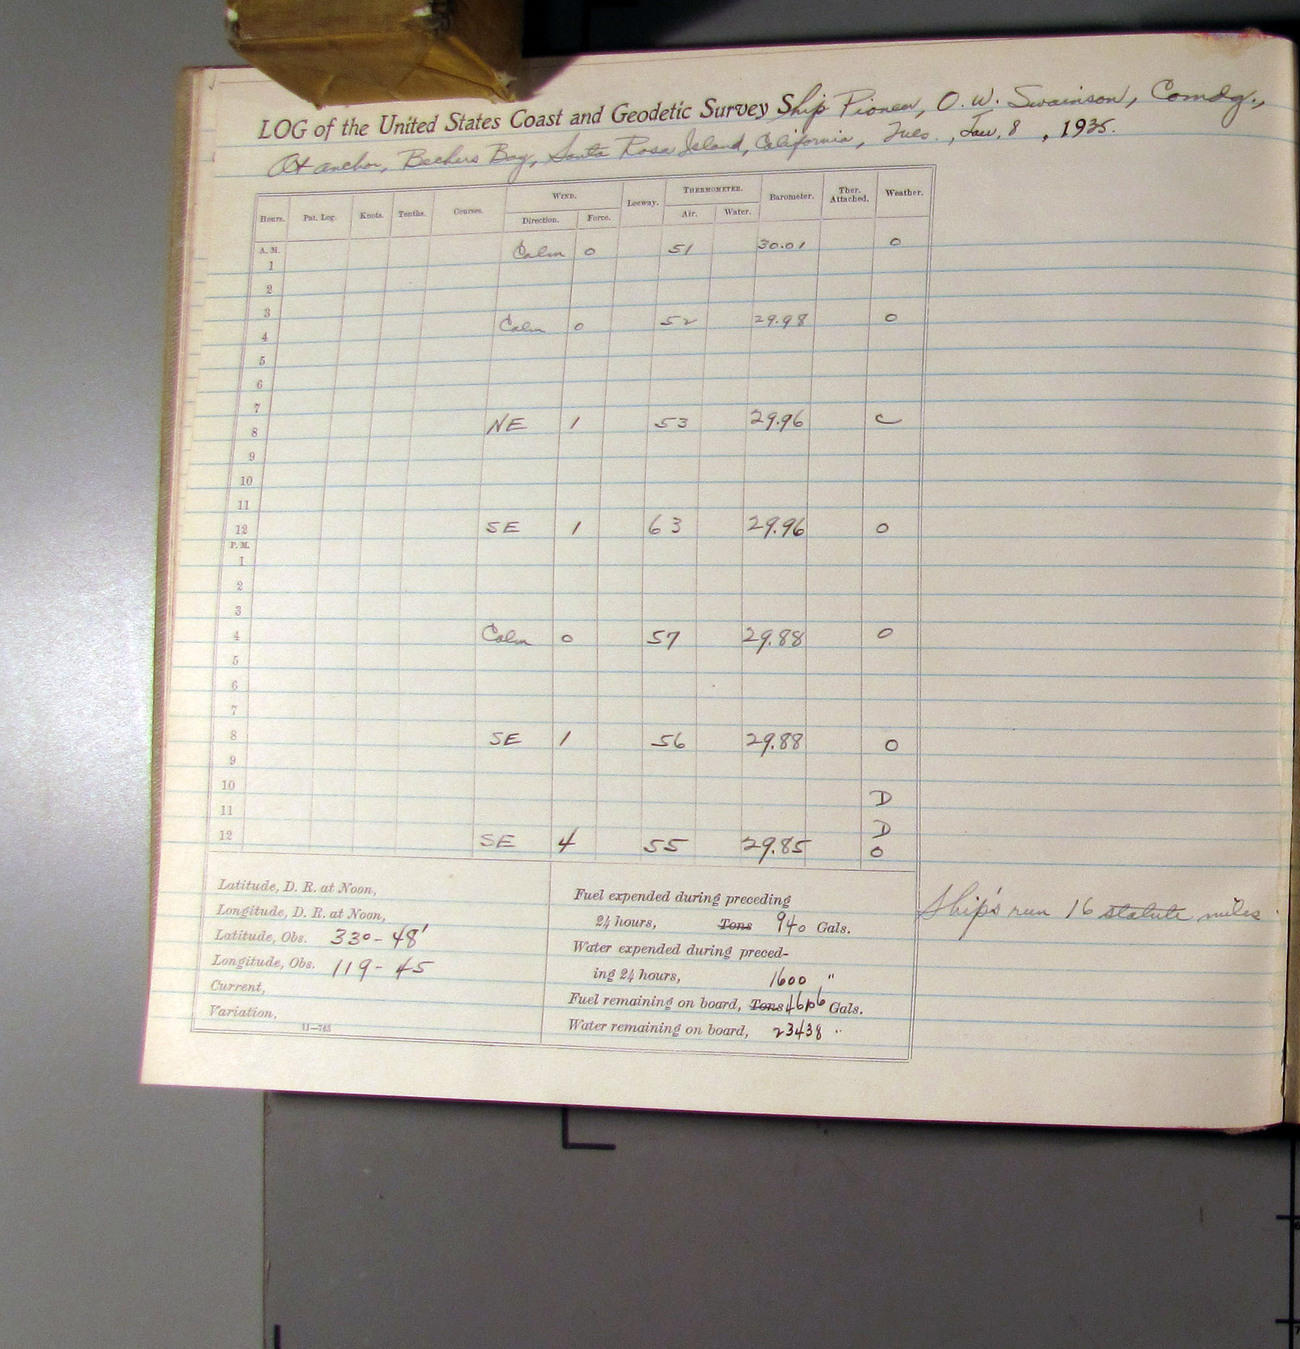 LOG of the United States Coast and Geodetic Survey Ship Pioneer, O. W. Swainson, Comdg.,
At anchor, Bechers Bay, Santa Rosa Island, California, Tues., Jan. 8, 1935.
WIND. THERMOMETER.
Hours. Pat. Log. Knots. Tenths. Courses. Direction. Force. Leeway. Air. Water. Barometer. Ther. Attached. Weather.
A. M. Calm 0 51 30.01 o
1
2
3
Calm 0 52 29.98 o
4
5
6
7
8 NE 1 53 29.96 c
9
10
11
12 SE 1 63 29.96 o
P. M.
1
2
3
4 Calm 0 57 29.88 o
5
6
7
8 SE 1 56 29.88 o
9
10 D
11 D
12 SE 4 55 29.85 o
Latitude, D. R. at Noon,
Longitude, D. R. at Noon,
Latitude, Obs. 330-48'
Longitude, Obs. 119-45
Current,
Variation,
11—743
Fuel expended during preceding
24 hours, Tons 940 Gals.
Water expended during preced-
ing 24 hours, 1600 "
Fuel remaining on board, Tons Gals.
Water remaining on board, 23438 "
Ship's run 16 statute miles.